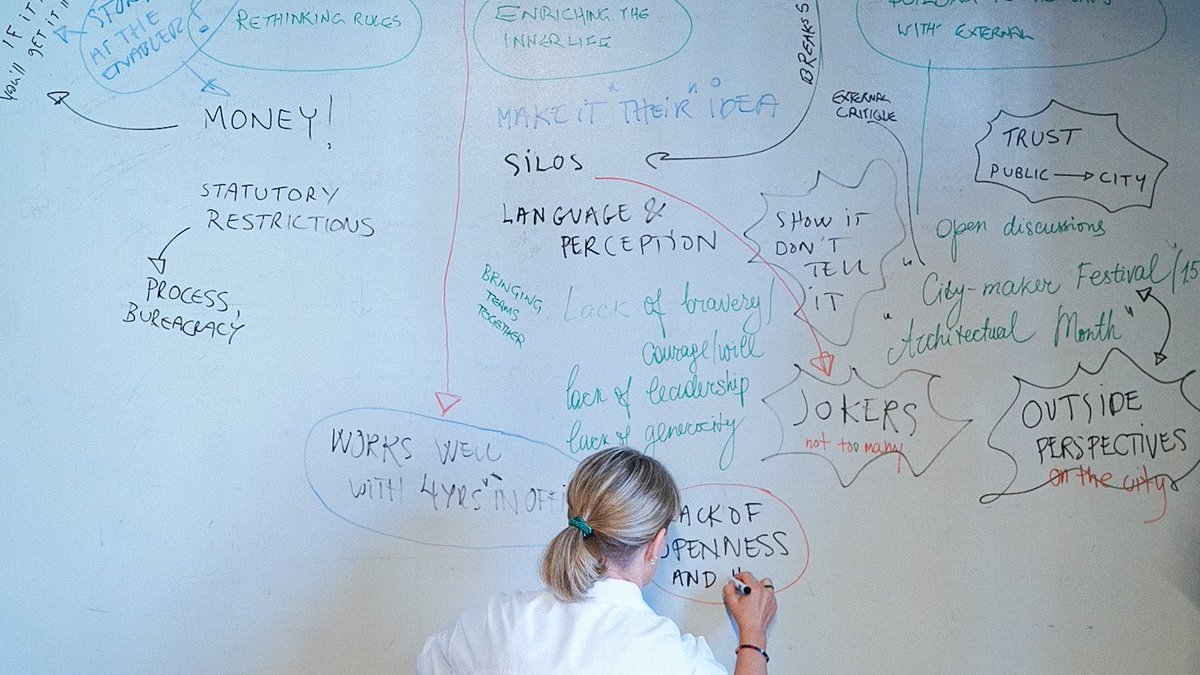 IF IT
YOU'LL GET IT!!
AT THE
ENABLER?
!
RETHINKING RULES
ENRICHING THE
INNERLIFE
BREAKS
WITH EXTERNAL
MONEY!
STATUTORY
RESTRICTIONS
PROCESS,
BUREACRACY
MAKE IT "THEIR" IDEA
SILOS
LANGUAGE &
PERCEPTION
BRINGING
TEAMS
TOGETHER
Lack of bravery/
courage/will
lack of leadership
lack of generocity
WORKS WELL
WITH 4YRS "IN OFFI
ACK OF
OPENNESS
AND "
EXTERNAL
CRITIQUE
SHOW IT
DON'T
TELL
IT
JOKERS
not too many
TRUST
PUBLIC → CITY
Open discussions
"City-maker Festival"/15
"Architectual Month"
OUTSIDE
PERSPECTIVES
on the city